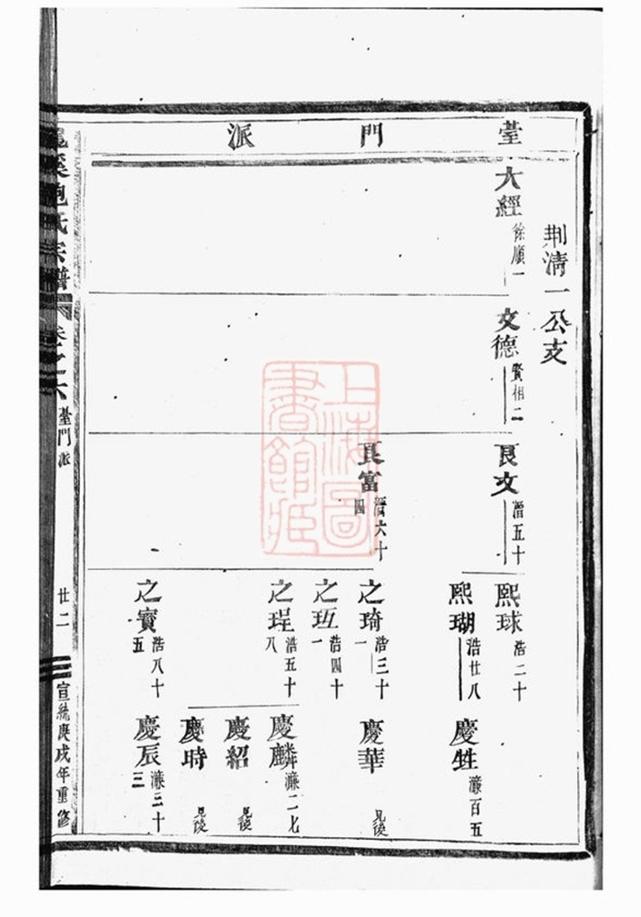 臺門派
荆清一公支
大經 徐順一
文德 貲相二
良文 濳五十
熙球 浩二十
熙瑚 浩廿八
慶甡 濂百五
良富 濳六十四
之琦 浩三十一
慶華 見後
之珏 浩四十一
之珵 浩五十八
慶麟 濂二七
慶紹 見後
慶時 見後
之寳 浩八十五
慶辰 濂三十三
溪鮑氏宗譜
卷之六
臺門派
廿二
宣統庚戌年重修
上海圖書館藏